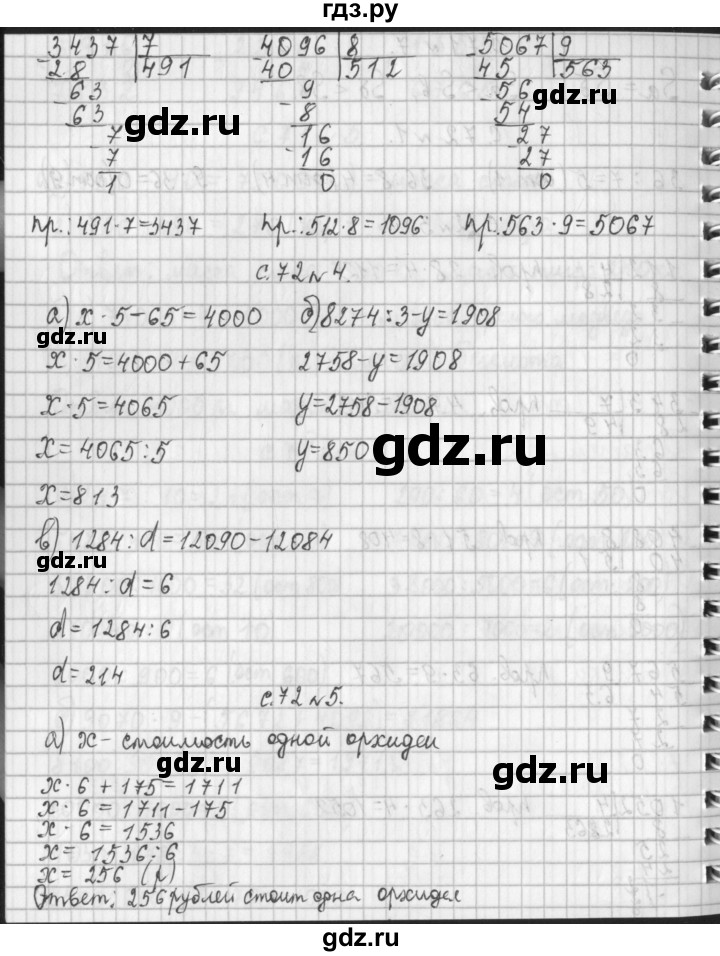 гдз.ру
3437 7 4096 8 5067 9
28 491 40 512 45 563
63 9 56
63 8 54
7 16 27
7 16 27
1 0 0
gdz.ru gdz.ru gdz.ru
пр.: 491·7=3437 пр.: 512·8=1096 пр: 563·9=5067
с.72 n 4.
а) x·5-65=4000 б) 8274:3-y=1908
gdz.ru
x·5=4000+65 2758-y=1908
x·5=4065 y=2758-1908
x=4065:5 y=850
gdz.ru
x=813
в) 1284:d=12090-12084
gdz.ru
1284:d=6
d=1284:6
d=214
с.72 n 5.
а) x- стоимость одной орхидеи
gdz.ru gdz.ru
x·6+175=1711
x·6=1711-175
x·6=1536
x=1536:6
x=256 (р)
Ответ: 256 рублей стоит одна орхидея
gdz.ru
gdz.ru